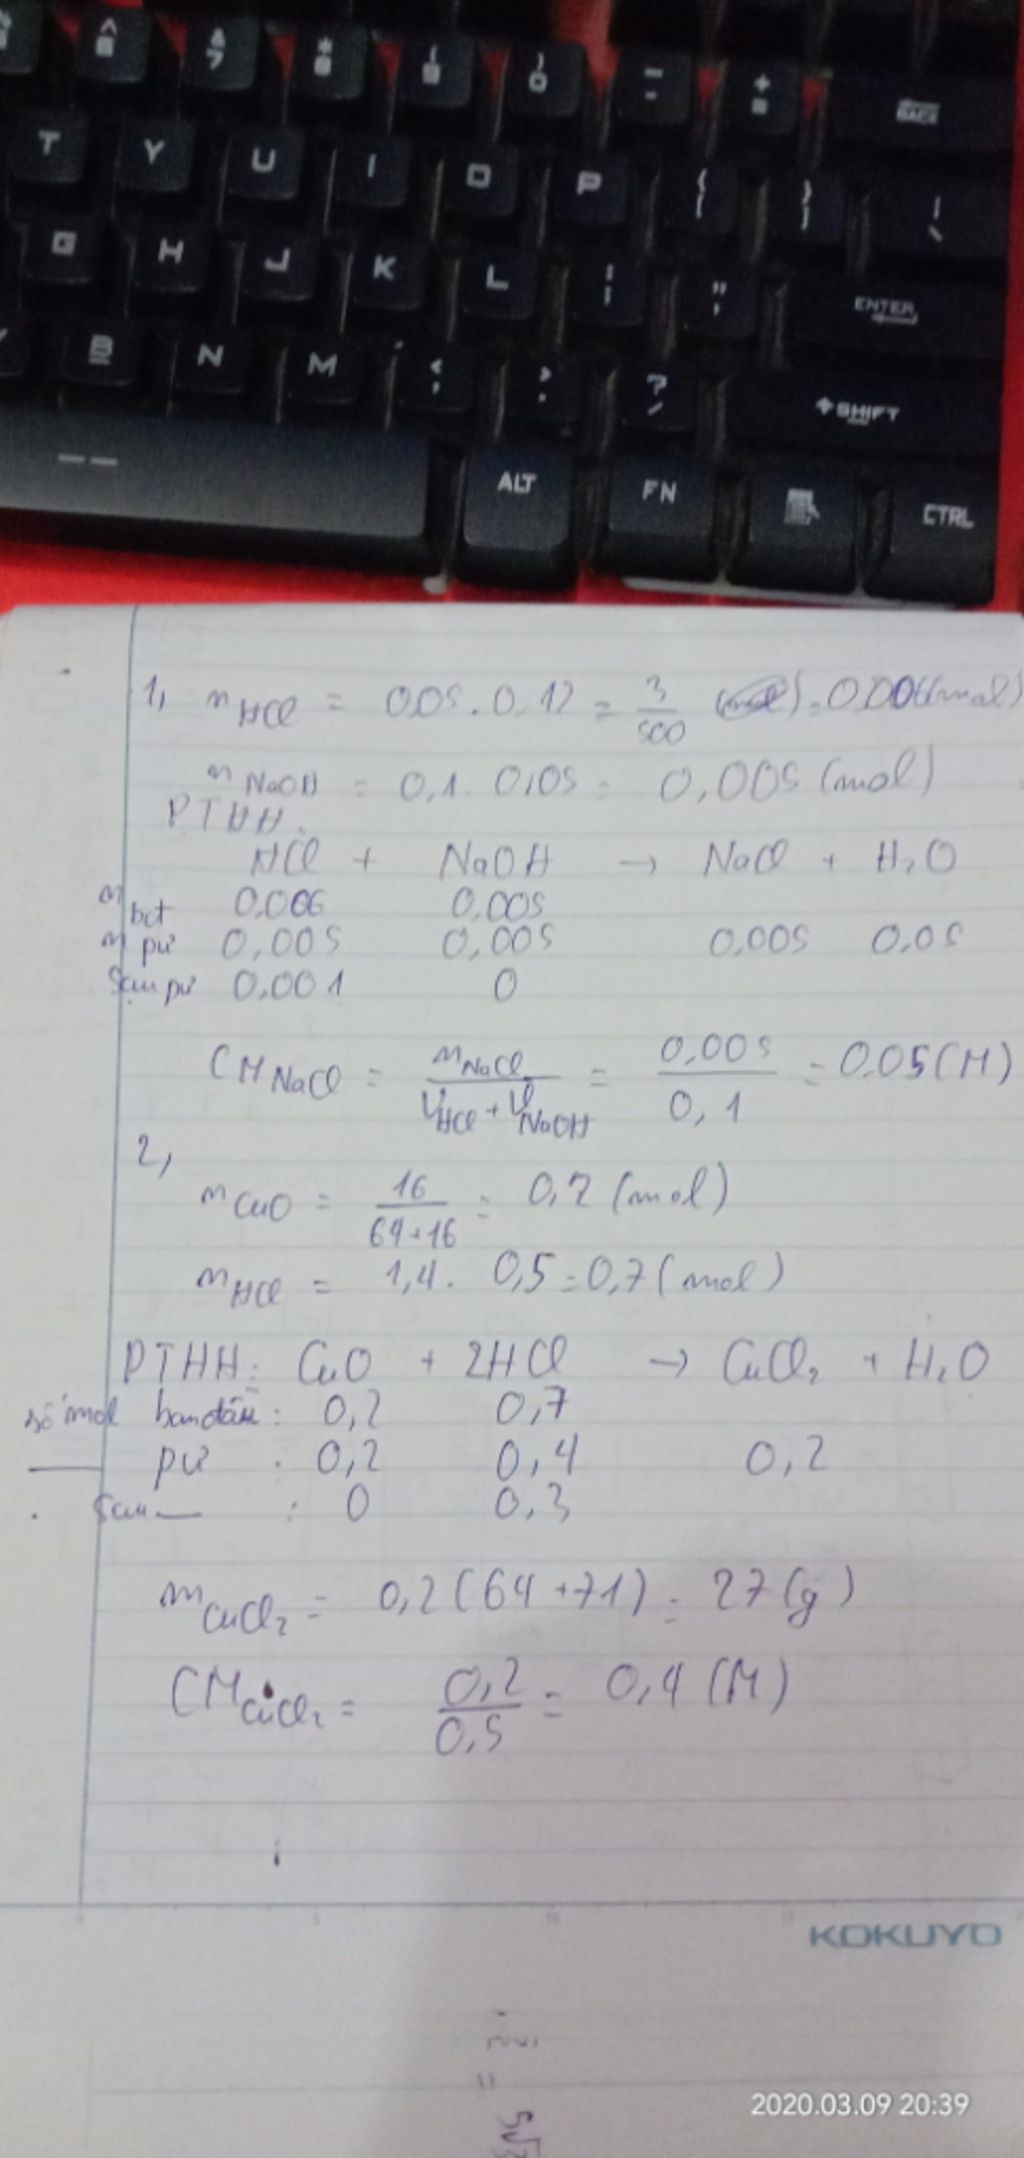 ^ 6 & 7 * 8 ( 9 ) 0 _ - + = BACK
T Y U I O P { [ } ] | \
G H J K L : ; " ' ENTER
B N M < , > . ? / SHIFT
ALT FN CTRL
1, nHCl = 0,05 . 0,12 = 3/500 = 0,006 (mol)
nNaOH = 0,1 . 0,05 = 0,005 (mol)
PTHH:
HCl + NaOH → NaCl + H2O
n bđ 0,006 0,005
n pứ 0,005 0,005 0,005 0,05
Sau pứ 0,001 0
CM NaCl = nNaCl / VHCl + VNaOH = 0,005 / 0,1 = 0,05 (M)
2,
nCuO = 16 / 64+16 = 0,2 (mol)
nHCl = 1,4 . 0,5 = 0,7 (mol)
PTHH: CuO + 2HCl → CuCl2 + H2O
số mol ban đầu : 0,2 0,7
— pứ : 0,2 0,4 0,2
Sau — : 0 0,3
mCuCl2 = 0,2 (64 + 71) = 27 (g)
CM CuCl2 = 0,2 / 0,5 = 0,4 (M)
KOKUYO
2020.03.09 20:39